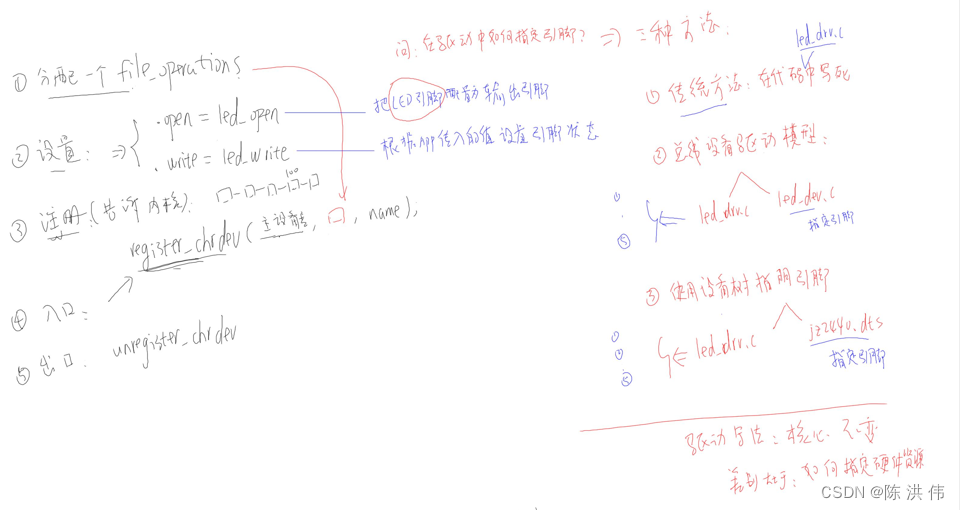 ① 分配一个 file_operations
② 设置: ⇒ { .open = led_open
.write = led_write
③ 注册(告诉内核):
100
register_chrdev(主设备号, 口, name),
④ 入口:
⑤ 出口. unregister_chrdev
把LED引脚配置为输出引脚
根据APP传入的值设置引脚状态
问: 在驱动中如何指定引脚? ⇒ 三种方法.
led_drv.c
① 传统方法: 在代码中写死
② 总线设备驱动模型:
led_drv.c led_dev.c
指定引脚
⑤
③ 使用设备树指明引脚
led_drv.c jz2440.dts
指定引脚
⑤
驱动写法: 核心不变
差别在于: 如何指定硬件资源
CSDN @陈 洪 伟